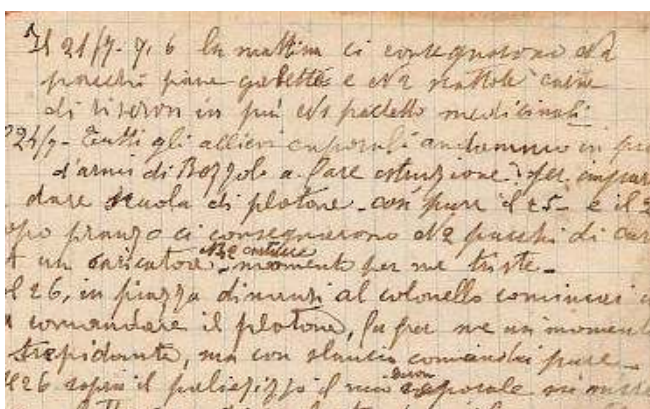 Il 21/7. 7, 6 la mattina ci consegnarono N 2
pacchi pane galette e N 2 scattole carne
di riseron in più N 1 pachetto medicinali
24/7 - Tutti gli allievi caporali andammo in
d'armi di Bozzolo a fare istruzione per impar
dare scuola di plotone - così pure il 25 - e il 2
opo pranzo ci consegnarono N 2 pacchi di car
un caricatore - N 2 momento per me triste -
l 26, in piazza dinanzi al colonello cominciai
comandare il plotone, fu per me un momen
trepidante, ma con slancio comandai pure -
l 26 sopra il il mio caporale